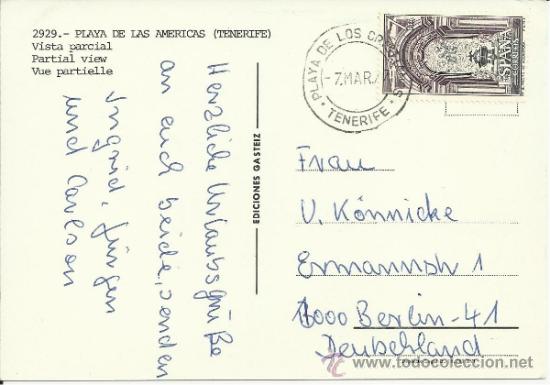 2929.- PLAYA DE LAS AMERICAS (TENERIFE)
Vista parcial
Partial view
Vue partielle
Herzliche Urlaubsgrüße
an euch beide, senden
Ingrid, Jürgen
und Carlson
EDICIONES GASTEIZ
PLAYA DE LOS
-7.MAR.
TENERIFE
ESPAÑA
CORREOS
Frau
U. Könnicke
Ermannstr 1
1000 Berlin-41
Deutschland
todocoleccion.net